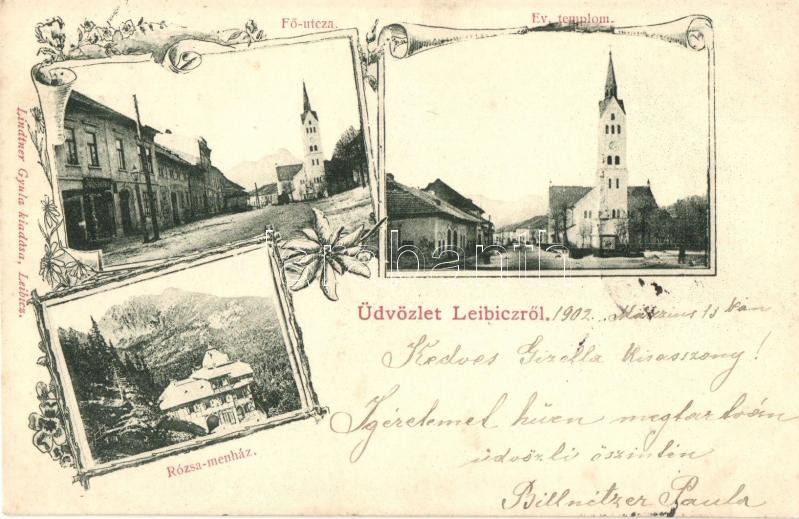 Fő-utcza.
Ev. templom.
Lindtner Gyula kiadása, Leibicz.
Rózsa-menház.
Üdvözlet Leibiczről. 1902. Márczius 15 kán
Kedves Gizella Kisasszony!
Igéretemet hüen megtartván
üdvözli öszintén
Billnitzer Paula